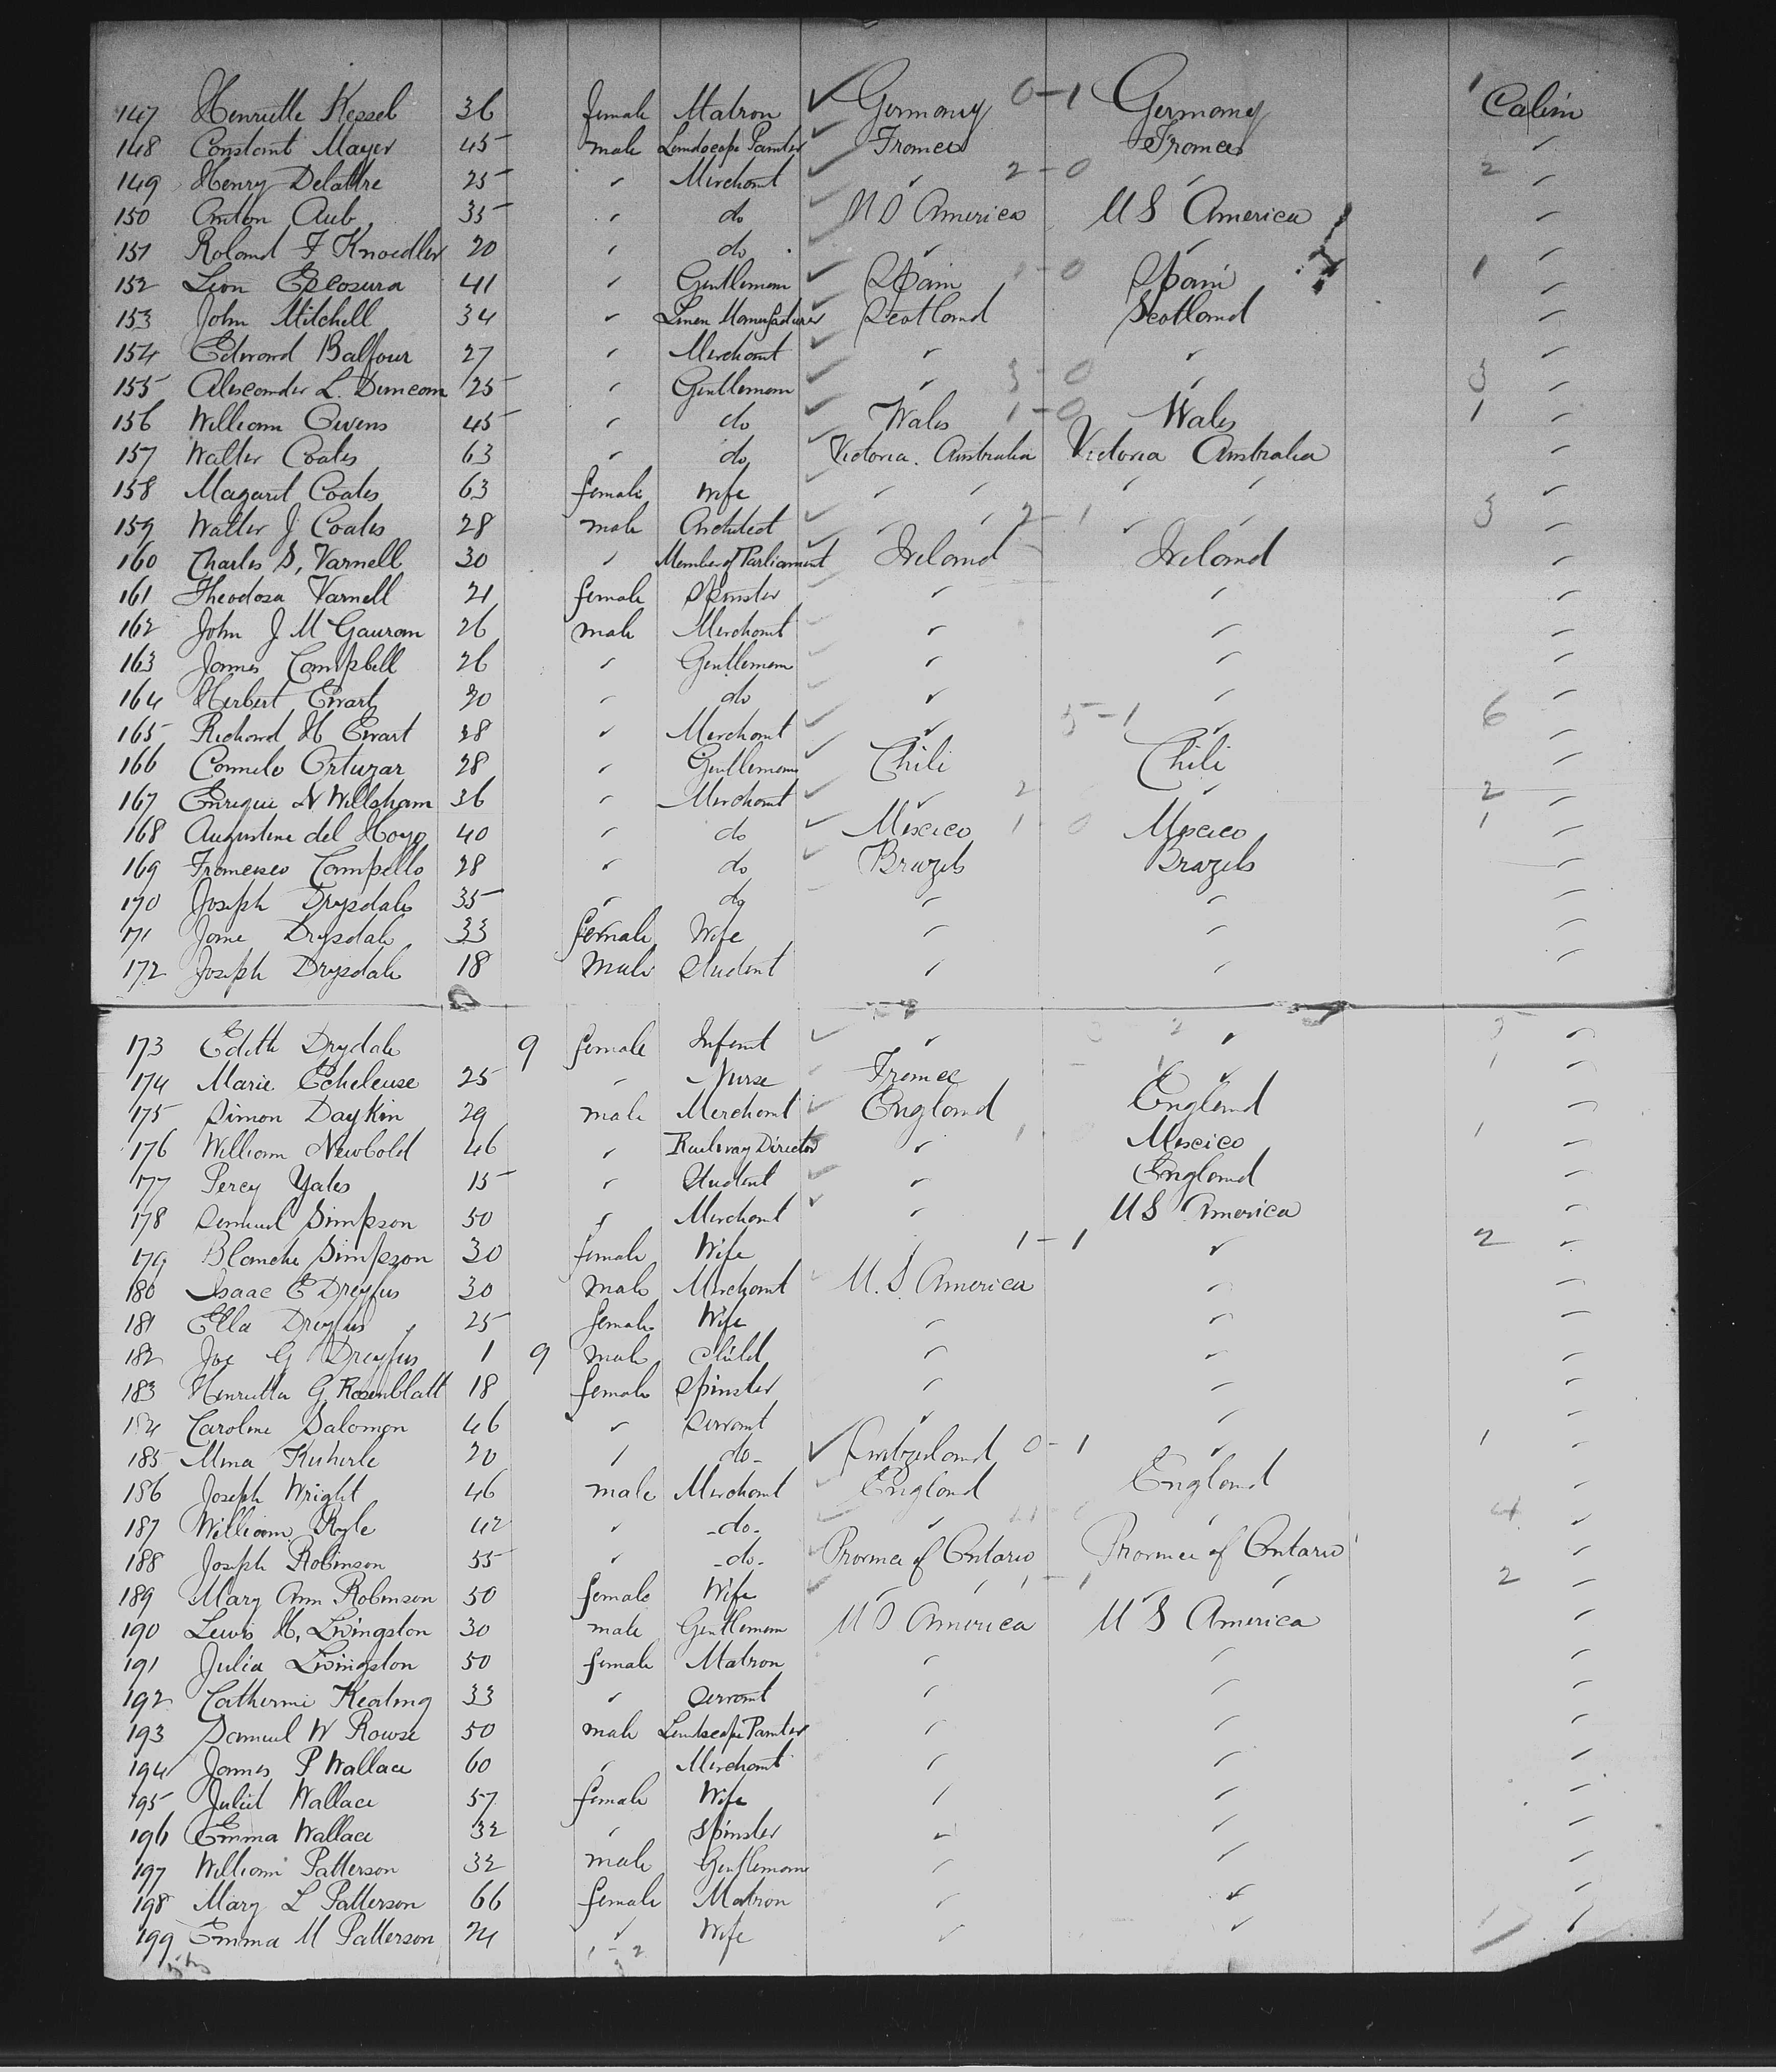 147 Henriette Kessel 36 female Matron ✓ Germany 0-1 Germany 1 Cabin
148 Constant Mayer 45 male Landscape Painter ✓ France France "
149 Henry Delattre 25 " Merchant ✓ " 2-0 " 2 "
150 Anton Aub 35 " do ✓ U S America U S America "
151 Roland F Knoedler 20 " do ✓ " " "
152 Leon Escosura 41 " Gentleman ✓ Spain 1-0 Spain 1 "
153 John Mitchell 34 " Linen Manufacturer ✓ Scotland Scotland "
154 Edward Balfour 27 " Merchant ✓ " " "
155 Alexander L. Duncan 25 " Gentleman ✓ " 3-0 " 3 "
156 William Owens 45 " do ✓ Wales 1-0 Wales 1 "
157 Walter Coates 63 " do ✓ Victoria. Australia Victoria Australia "
158 Magaret Coates 63 female Wife ✓ " " " " "
159 Walter J Coates 28 male Architect ✓ " " 2-1 " " 3 "
160 Charles S, Parnell 30 " Member of Parliament ✓ Ireland Ireland "
161 Theodosa Parnell 21 female Spinster ✓ " " "
162 John J McGauran 26 male Merchant ✓ " " "
163 James Campbell 26 " Gentleman ✓ " " "
164 Herbert Ewart 20 " do ✓ " " "
165 Richard H Ewart 28 " Merchant ✓ " 5-1 " 6 "
166 Ortuzar 28 " Gentleman ✓ Chili Chili "
167 Enrique N Willsham 36 " Merchant ✓ " 2 " 2 "
168 Augustine del Hoyo 40 " do ✓ Mexico 1-0 Mexico 1 "
169 Francisco Campello 28 " do ✓ Brazils Brazils "
170 Joseph Drysdale 35 " do " " "
171 Jane Drysdale 33 female Wife " " "
172 Joseph Drysdale 18 Male Student " " "
173 Edith Drydale 9 female Infant ✓ " " "
174 Marie Echeleuse 25 " Nurse ✓ France 1 "
175 Simon Daykin 29 male Merchant ✓ England England "
176 William Newbold 46 " Railway Director " Mexico 1 "
177 Percy Yates 15 " Student ✓ " England "
178 Samuel Simpson 50 " Merchant ✓ " U S America "
179 Blanche Simpson 30 female Wife " 1-1 " 2 "
180 Isaac E Dreyfus 30 male Merchant ✓ U. S. America " "
181 Ella Dreyfus 25 female Wife " " "
182 Joe G Dreyfus 1 9 male Child " " "
183 Henrietta G Rosenblatt 18 female Spinster " " "
184 Caroline Salomon 46 " Servant " " "
185 Mina 20 " do- ✓ Switzerland 0-1 " 1 "
186 Joseph Wright 46 male Merchant ✓ England England "
187 William Ryle 42 " -do- ✓ " " 4 "
188 Joseph Robinson 55 " -do- ✓ Province of Ontario Province of Ontario "
189 Mary Ann Robinson 50 female Wife ✓ " " 1-1 " " 2 "
190 Lewis H, Livingston 30 male Gentleman U S America U S America "
191 Julia Livingston 50 female Matron " " "
192 Catherine Keating 33 " Servant " " "
193 Samuel W Rowse 50 male Landscape Painter " " "
194 James P Wallace 60 " Merchant " " "
195 Juliet Wallace 57 female Wife " " "
196 Emma Wallace 32 " Spinster " " "
197 William Patterson 32 male Gentleman " " "
198 Mary L Patterson 66 female Matron " " "
199 Emma M Patterson 24 " Wife " " "